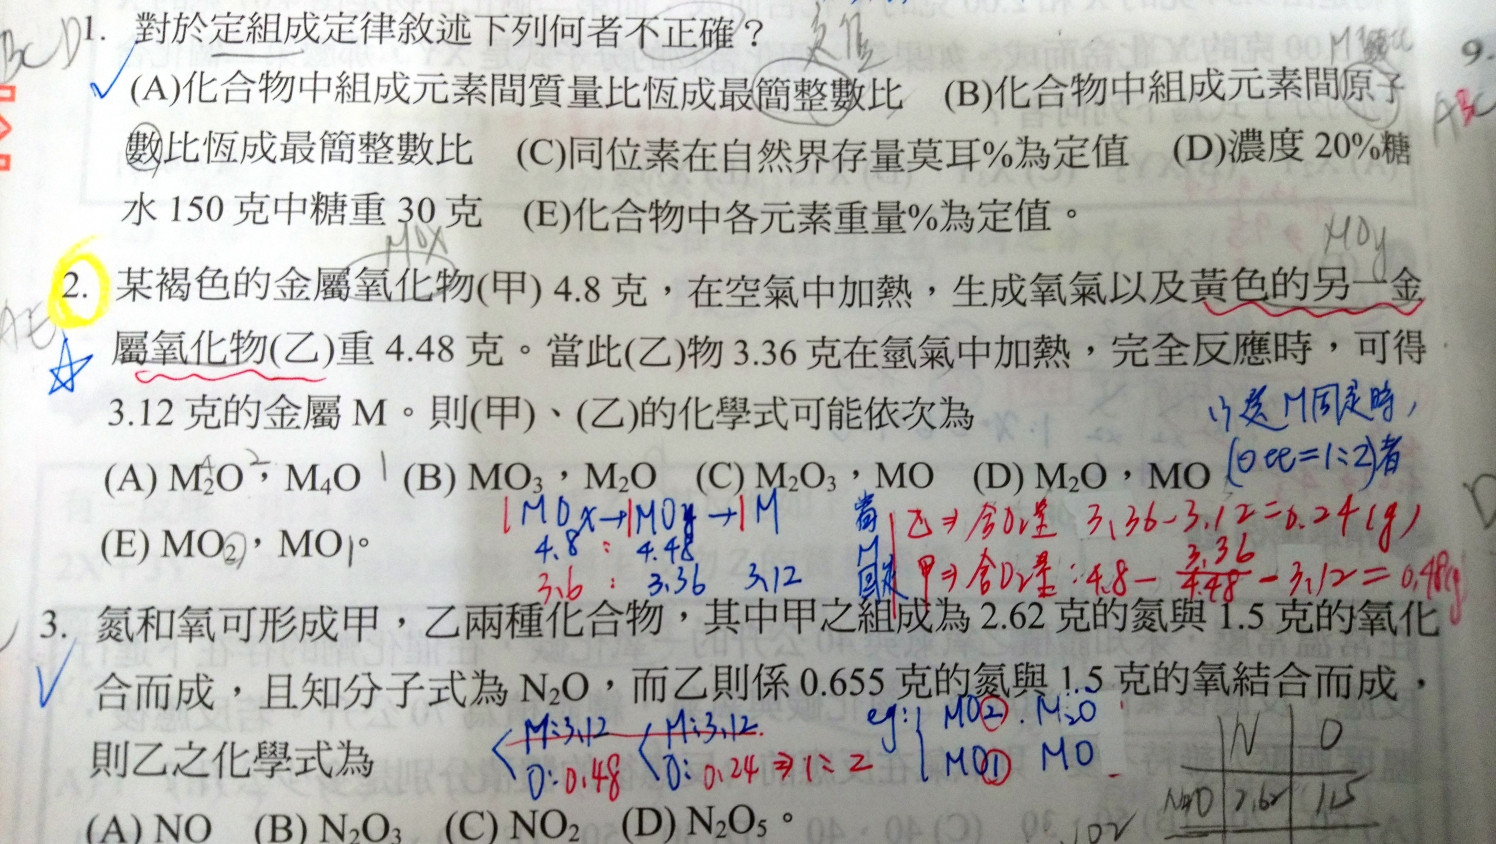 BCD 1. 對於定組成定律敘述下列何者不正確？
(A)化合物中組成元素間質量比恆成最簡整數比 (B)化合物中組成元素間原子
數比恆成最簡整數比 (C)同位素在自然界存量莫耳%為定值 (D)濃度 20%糖
水 150 克中糖重 30 克 (E)化合物中各元素重量%為定值。
9.
ABC
MOx
MOy
AE 2. 某褐色的金屬氧化物(甲) 4.8 克，在空氣中加熱，生成氧氣以及黃色的另一金
屬氧化物(乙)重 4.48 克。當此(乙)物 3.36 克在氫氣中加熱，完全反應時，可得
3.12 克的金屬 M。則(甲)、(乙)的化學式可能依次為
M固定時，
(A) M₂O，M₄O (B) MO₃，M₂O (C) M₂O₃，MO (D) M₂O，MO
(E) MO₂，MO。
1MOx→1MOy→1M
4.8 : 4.48
3.6 : 3.36 3.12
當M固定
乙⇒含O₂量 3.36-3.12=0.24(g)
甲⇒含O₂量:4.8-
3. 氮和氧可形成甲，乙兩種化合物，其中甲之組成為 2.62 克的氮與 1.5 克的氧化
合而成，且知分子式為 N₂O，而乙則係 0.655 克的氮與 1.5 克的氧結合而成，
則乙之化學式為
M:3.12 M:3.12
O:0.48 O:0.24⇒1:2
eg: MO② . M₂O
MO① MO
N O
N₂O 2.62 1.5
(A) NO (B) N₂O₃ (C) NO₂ (D) N₂O₅。